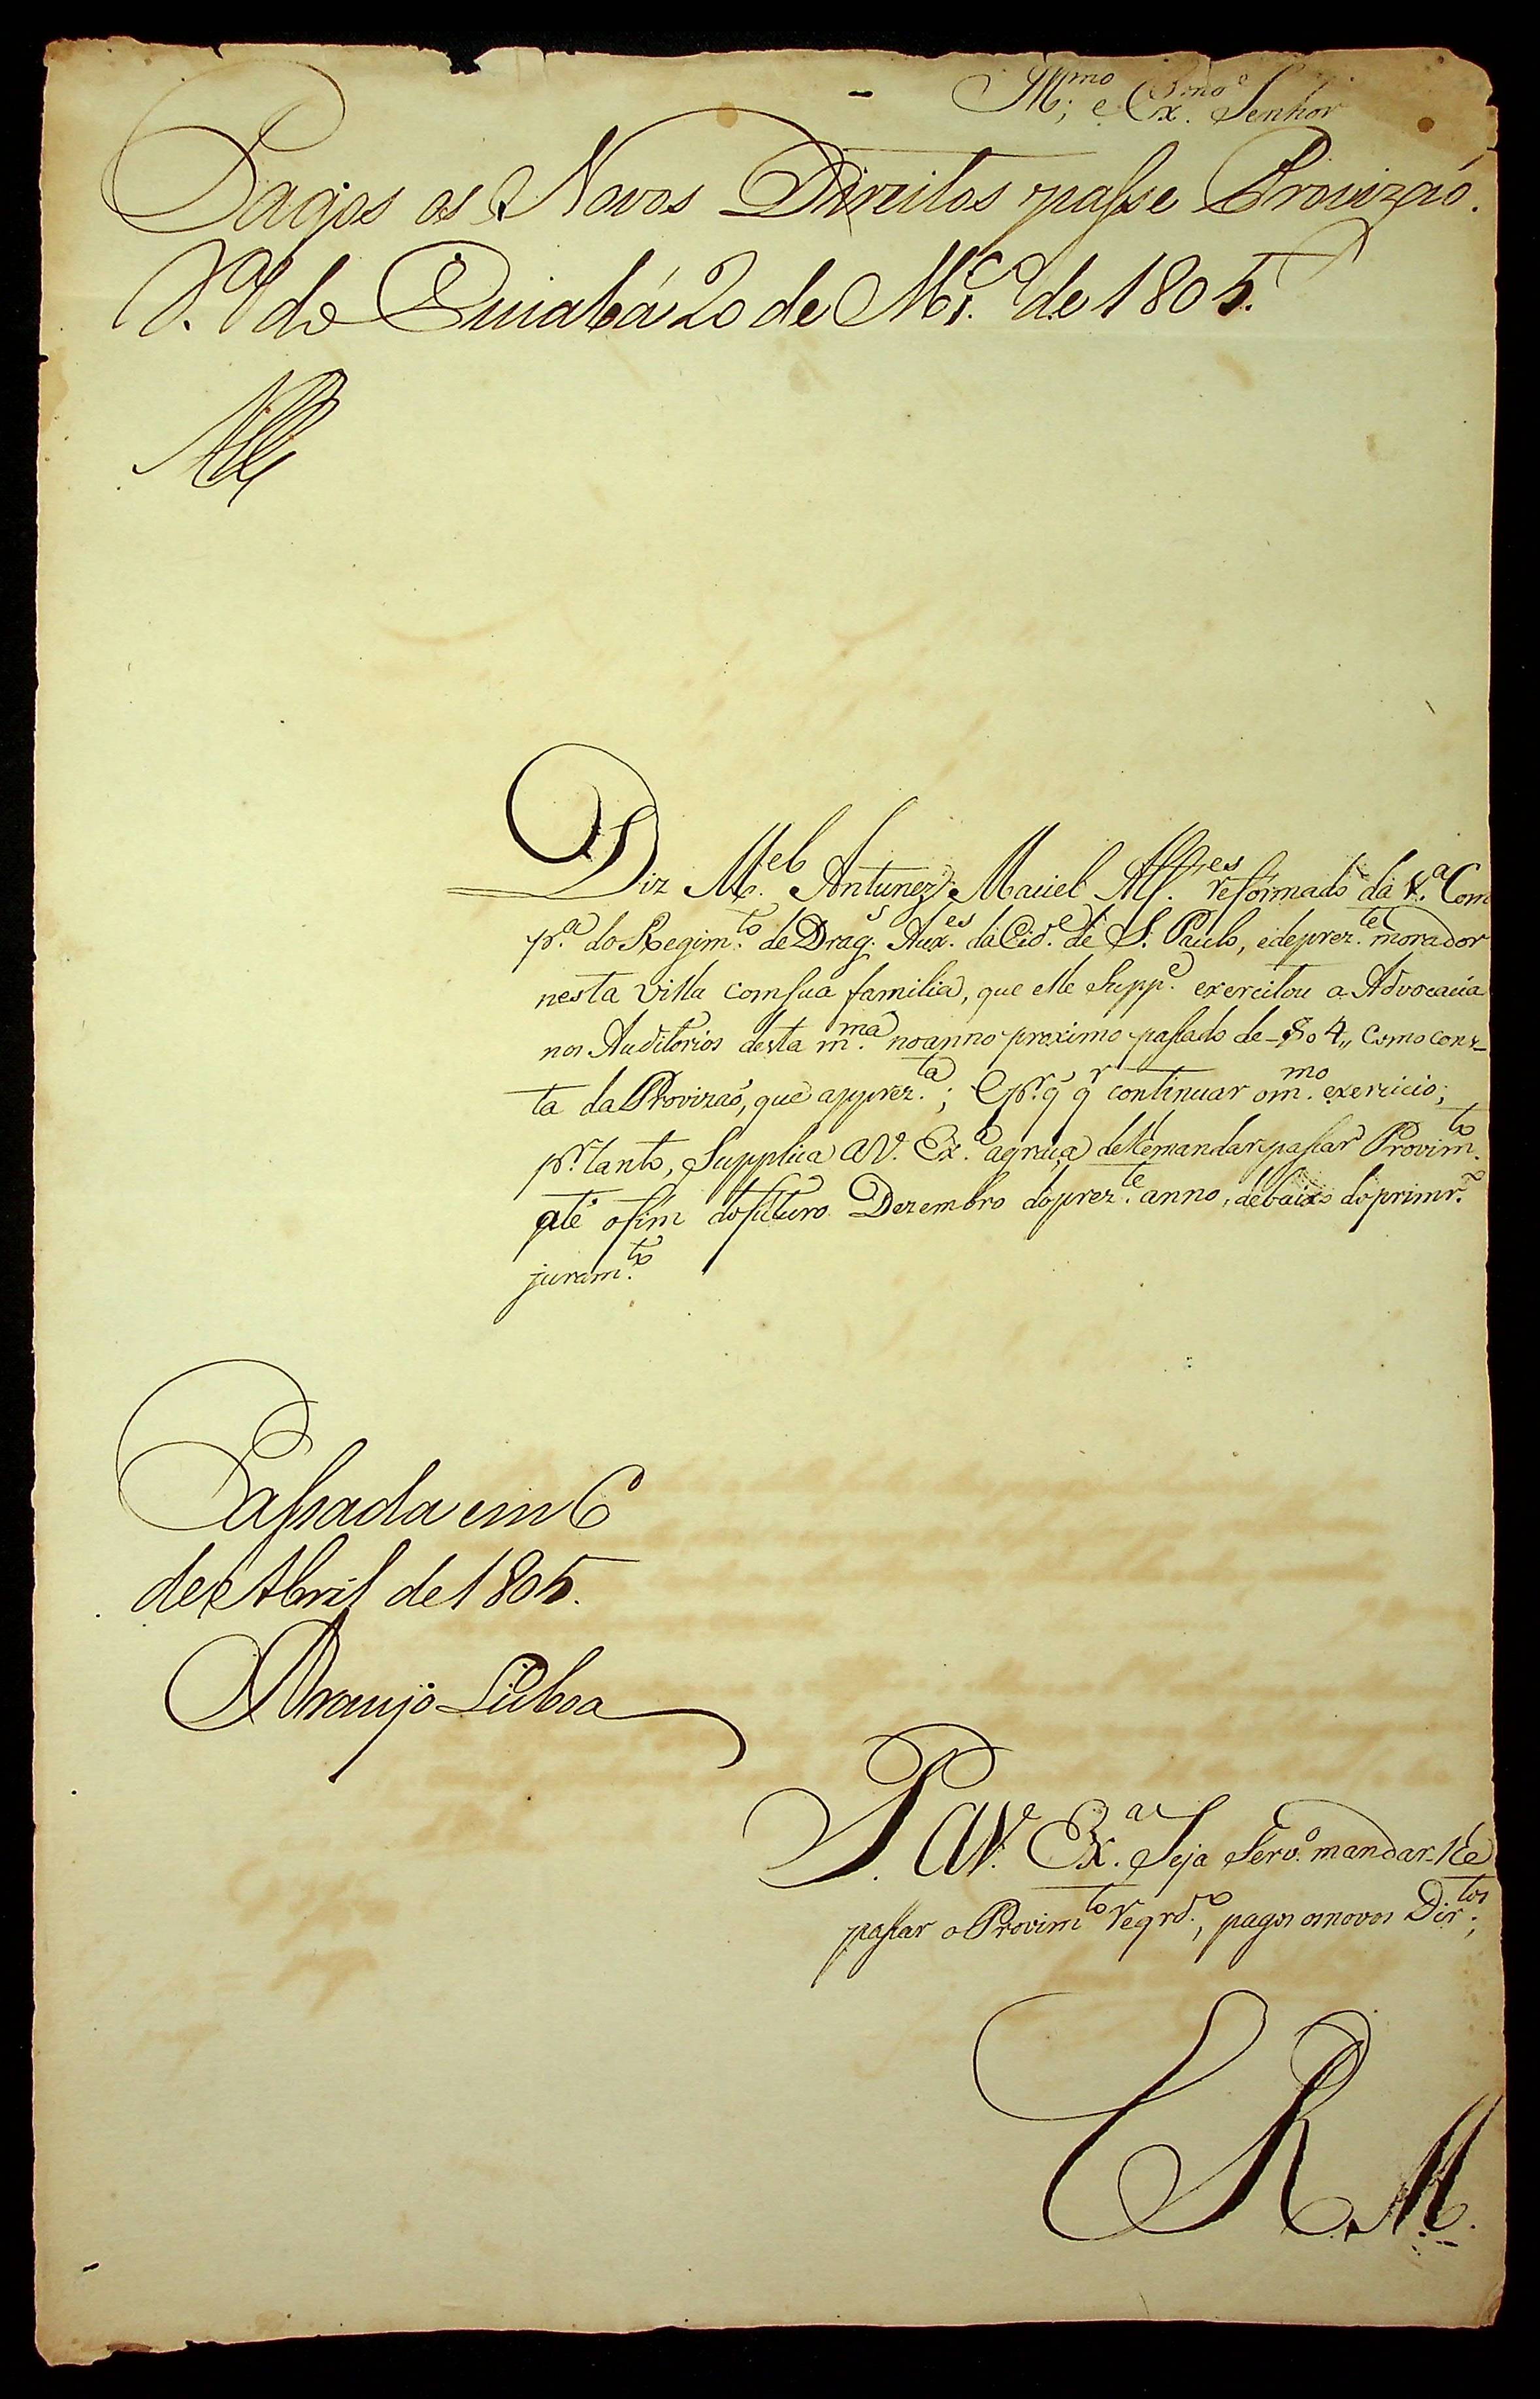 Ill.mo e Ex.mo Senhor
Pagos os Novos Direitos passe Provizaó.
V.a do Cuiabá 20 de M.ço de 1805.
Diz M.el Antunez Maciel Alf.es reformado da 1.a Com
p.a do Regim.to de Drag.s Aux.es da Cid.e de S. Paulo, e de prez.te morador
nesta Villa com sua familia, que elle Supp.e exercitou a Advocacia
nos Auditorios desta m.ma no anno proximo passado de -804,, como cons-
ta da Provizaó, que apprez.ta; e p.r q̃ q.r continuar o m.mo exercicio;
p.r tanto, Supplica a V. Ex.a a graça de lhe mandar passar Provim.to
até o fim do futuro Dezembro do prez.te anno, debaixo do primr.o
juram.to
Passada em 6
de Abril de 1805.
Araujo Lisboa
P. a V. Ex.a Seja Serv.o mandar-lhe
passar o Provim.to reqrd.o, pagos os novos Dir.tos;
E R M.